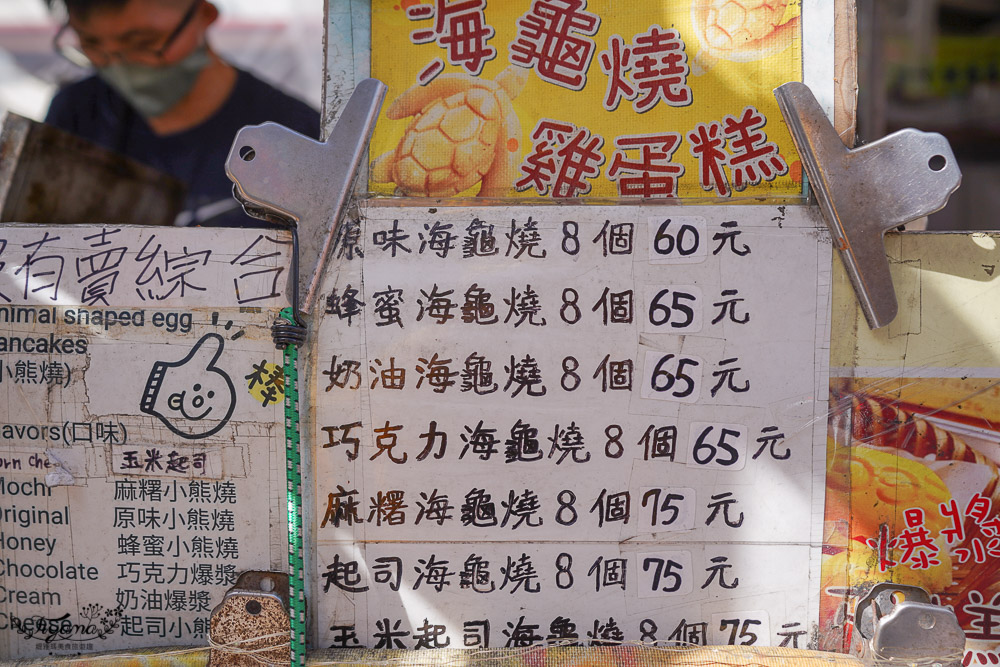 海龜燒
雞蛋糕
原味海龜燒8個60元
蜂蜜海龜燒8個65元
奶油海龜燒8個65元
巧克力海龜燒8個65元
麻糬海龜燒8個75元
起司海龜燒8個75元
玉米起司海龜燒8個75元
有賣綜合
nimal shaped egg
ancakes
小熊燒)
棒
lavors(口味)
orn Che
玉米起司
Mochi 麻糬小熊燒
Original 原味小熊燒
Honey 蜂蜜小熊燒
Chocolate 巧克力爆漿
Cream 奶油爆漿
Cheese 起司小熊
爆漿